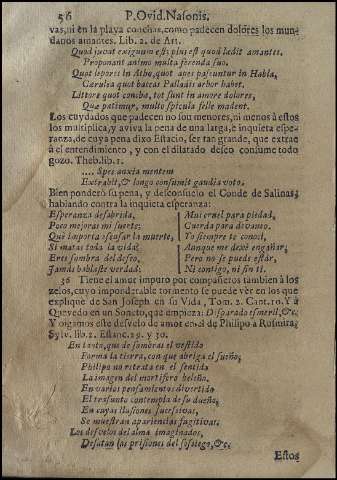 56 P. Ovid. Nasonis.
vas, ni en la playa conchas, como padecen dolores los mun-
danos amantes. Lib. 2. de Art.
Quod juvat exiguum est; plus est quod lædit amantes,
Proponant animo multa ferenda suo.
Quot lepores in Atho, quot apes pascuntur in Habla,
Cærulea quot baccas Palladis arbor habet.
Littore quot conchæ, tot sunt in amore dolores,
Quæ patimur, multo spicula felle madent.
Los cuydados que padecen no son menores, ni menos à estos
los multiplica, y aviva la pena de una larga, è inquieta espe-
ranza, de cuya pena dixo Estacio, ser tan grande, que extrae
à el entendimiento, y con el dilatado deseo consume todo
gozo. Theb. lib. 1.
.... Spes auxia mentem
Extrahit, & longo consumit gaudia voto.
Bien ponderò su pena, y desconsuelo el Conde de Salinas,
hablando contra la inquieta esperanza:
Esperanza desabrida,
Poco mejoras mi suerte;
Què importa escusar la muerte,
Si matas toda la vida?
Eres sombra del deseo,
Jamàs hablaste verdad;
Mui cruel para piedad,
Cuerda para divamo.
Yo siempre te conocì,
Aunque me dexè engañar,
Pero no se puede estàr,
Ni contigo, ni sin ti.
36 Tiene el amor impuro por compañeros tambien à los
zelos, cuyo imponderable tormento se puede vèr en los que
explique de San Joseph en su Vida, Tom. 2. Cant. 10. Y à
Quevedo en un Soneto, que empieza: Disparado esmeril, &c.
Y oigamos este desvelo de amor en el de Philipo à Rusinira;
Sylv. lib. 2. Estanc. 29. y 30.
En tanto, que de sombras el vestido
Forma la tierra, con que abriga el sueño,
Philipo no retrata en el sentido
La imagen del mortifero beleño.
En varios pensamientos divertido
El trasunto contempla de su dueño,
En cuyas ilusiones sucesivas,
Se muestran apariencias fugitivas.
Los desvelos del alma imaginados,
Desatan las prisiones del sosiego, &c.
Estos